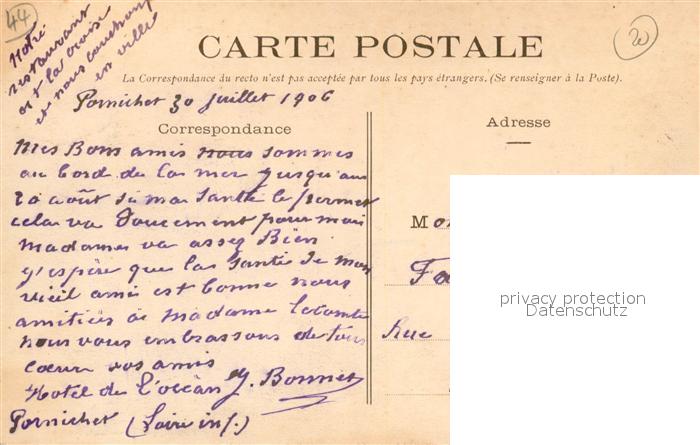 44
Notre
restaurant
est la croisé
et nous couchons
en ville
20
CARTE POSTALE
La Correspondance du recto n'est pas acceptée par tous les pays étrangers. (Se renseigner à la Poste).
Pornichet 30 juillet 1906
Correspondance
Adresse
Mes Bons amis nous sommes
au bord de la mer jusqu'au
20 août si ma santé le permet
cela va doucement pour moi
madame va assez Bien
j'espère que la santé de mon
vieil ami est bonne nous
amitiées à madame Lecomte
nous vous embrassons de tous
cœur vos amis
Hotel de l'océan J. Bonnet
Pornichet (Loire inf.)
Mo
Fa
Rue
privacy protection
Datenschutz